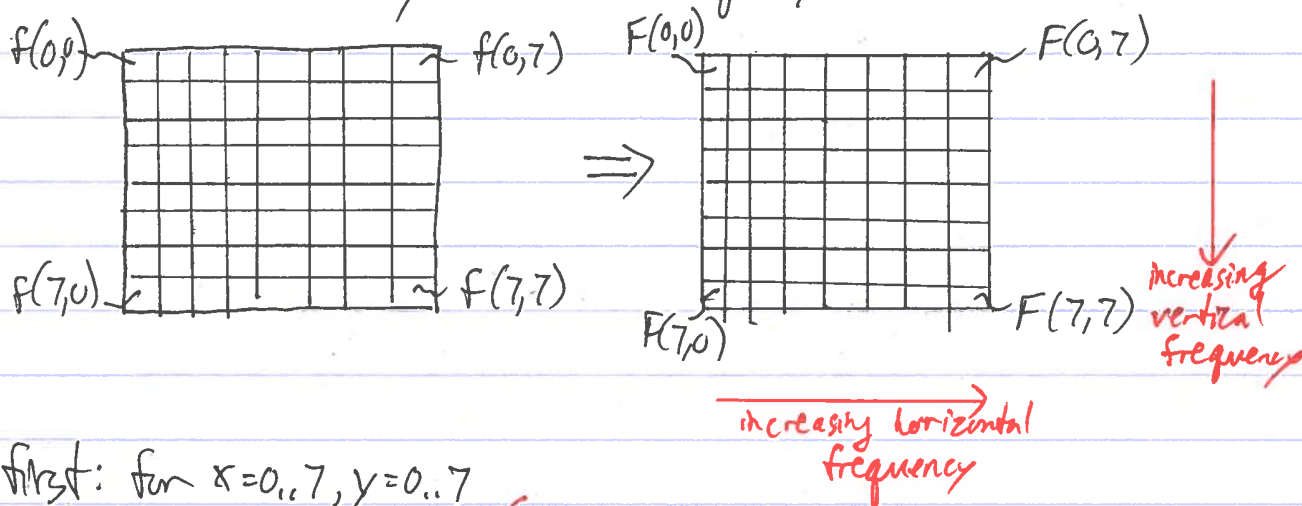 f(0,0) f(0,7) F(0,0) F(0,7)
f(7,0) f(7,7) F(7,0) F(7,7)
increasing
vertical
frequency
increasing horizontal
frequency
first: for x=0..7, y=0..7